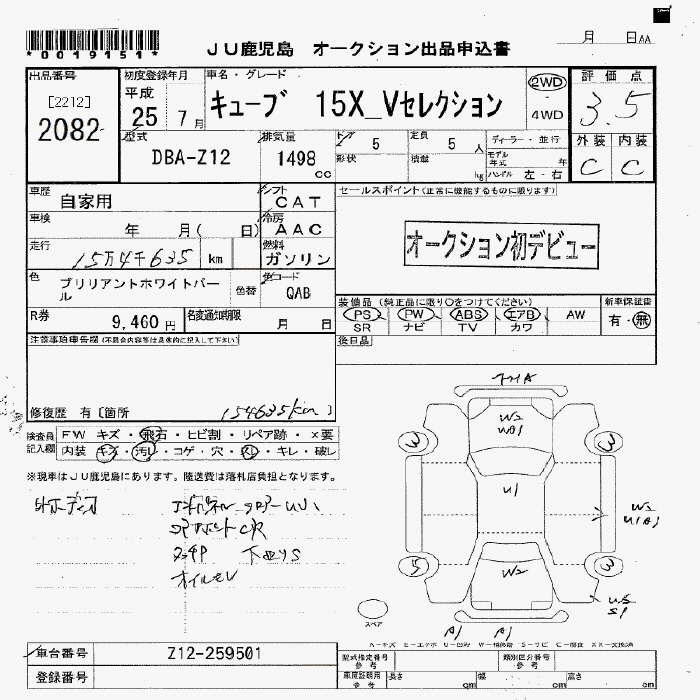 *0019151*
JU鹿児島 オークション出品申込書
月 日AA
出品番号
[2212]
2082
初度登録年月
平成
25 7月
車名・グレード
キューブ 15X_Vセレクション
2WD
-
4WD
評価点
3.5
外装 内装
C C
型式
DBA-Z12
排気量
1498
cc
ドア 5
形状
定員 5 人
積載 kg
ディーラー・並行
モデル年式 年
ハンドル 左・右
車歴
自家用
シフト
CAT
車検
年 月( 日)
冷房
AAC
走行
15万4千635 km
燃料
ガソリン
色
ブリリアントホワイトパール
色替
色コード
QAB
R券
9,460円
名変通知期限
月 日
セールスポイント(正常に機能するものに限ります)
オークション初デビュー
装備品(純正品に限り○をつけてください)
PS PW ABS エアB AW
SR ナビ TV カワ
新車保証書
有・無
後日品
注意事項申告欄(不具合内容等は具体的に記入して下さい)
修復歴 有〔箇所 154635km 〕
検査員記入欄
FW キズ・飛石・ヒビ割・リペア跡・×要
内装 キズ・汚レ・コゲ・穴・スレ・キレ・破レ
※現車はJU鹿児島にあります。陸送費は落札店負担となります。
オイル
下
3
3
5
3
W2
U1
W2
A1
A1
スペア
A=キズ E=エクボ U=凹み W=補修跡 S=サビ C=腐食 XX=交換済
車台番号
Z12-259501
登録番号
型式指定番号
参考
類別区分番号
参考
車庫証明用
参考
長さ cm
幅 cm
高さ cm